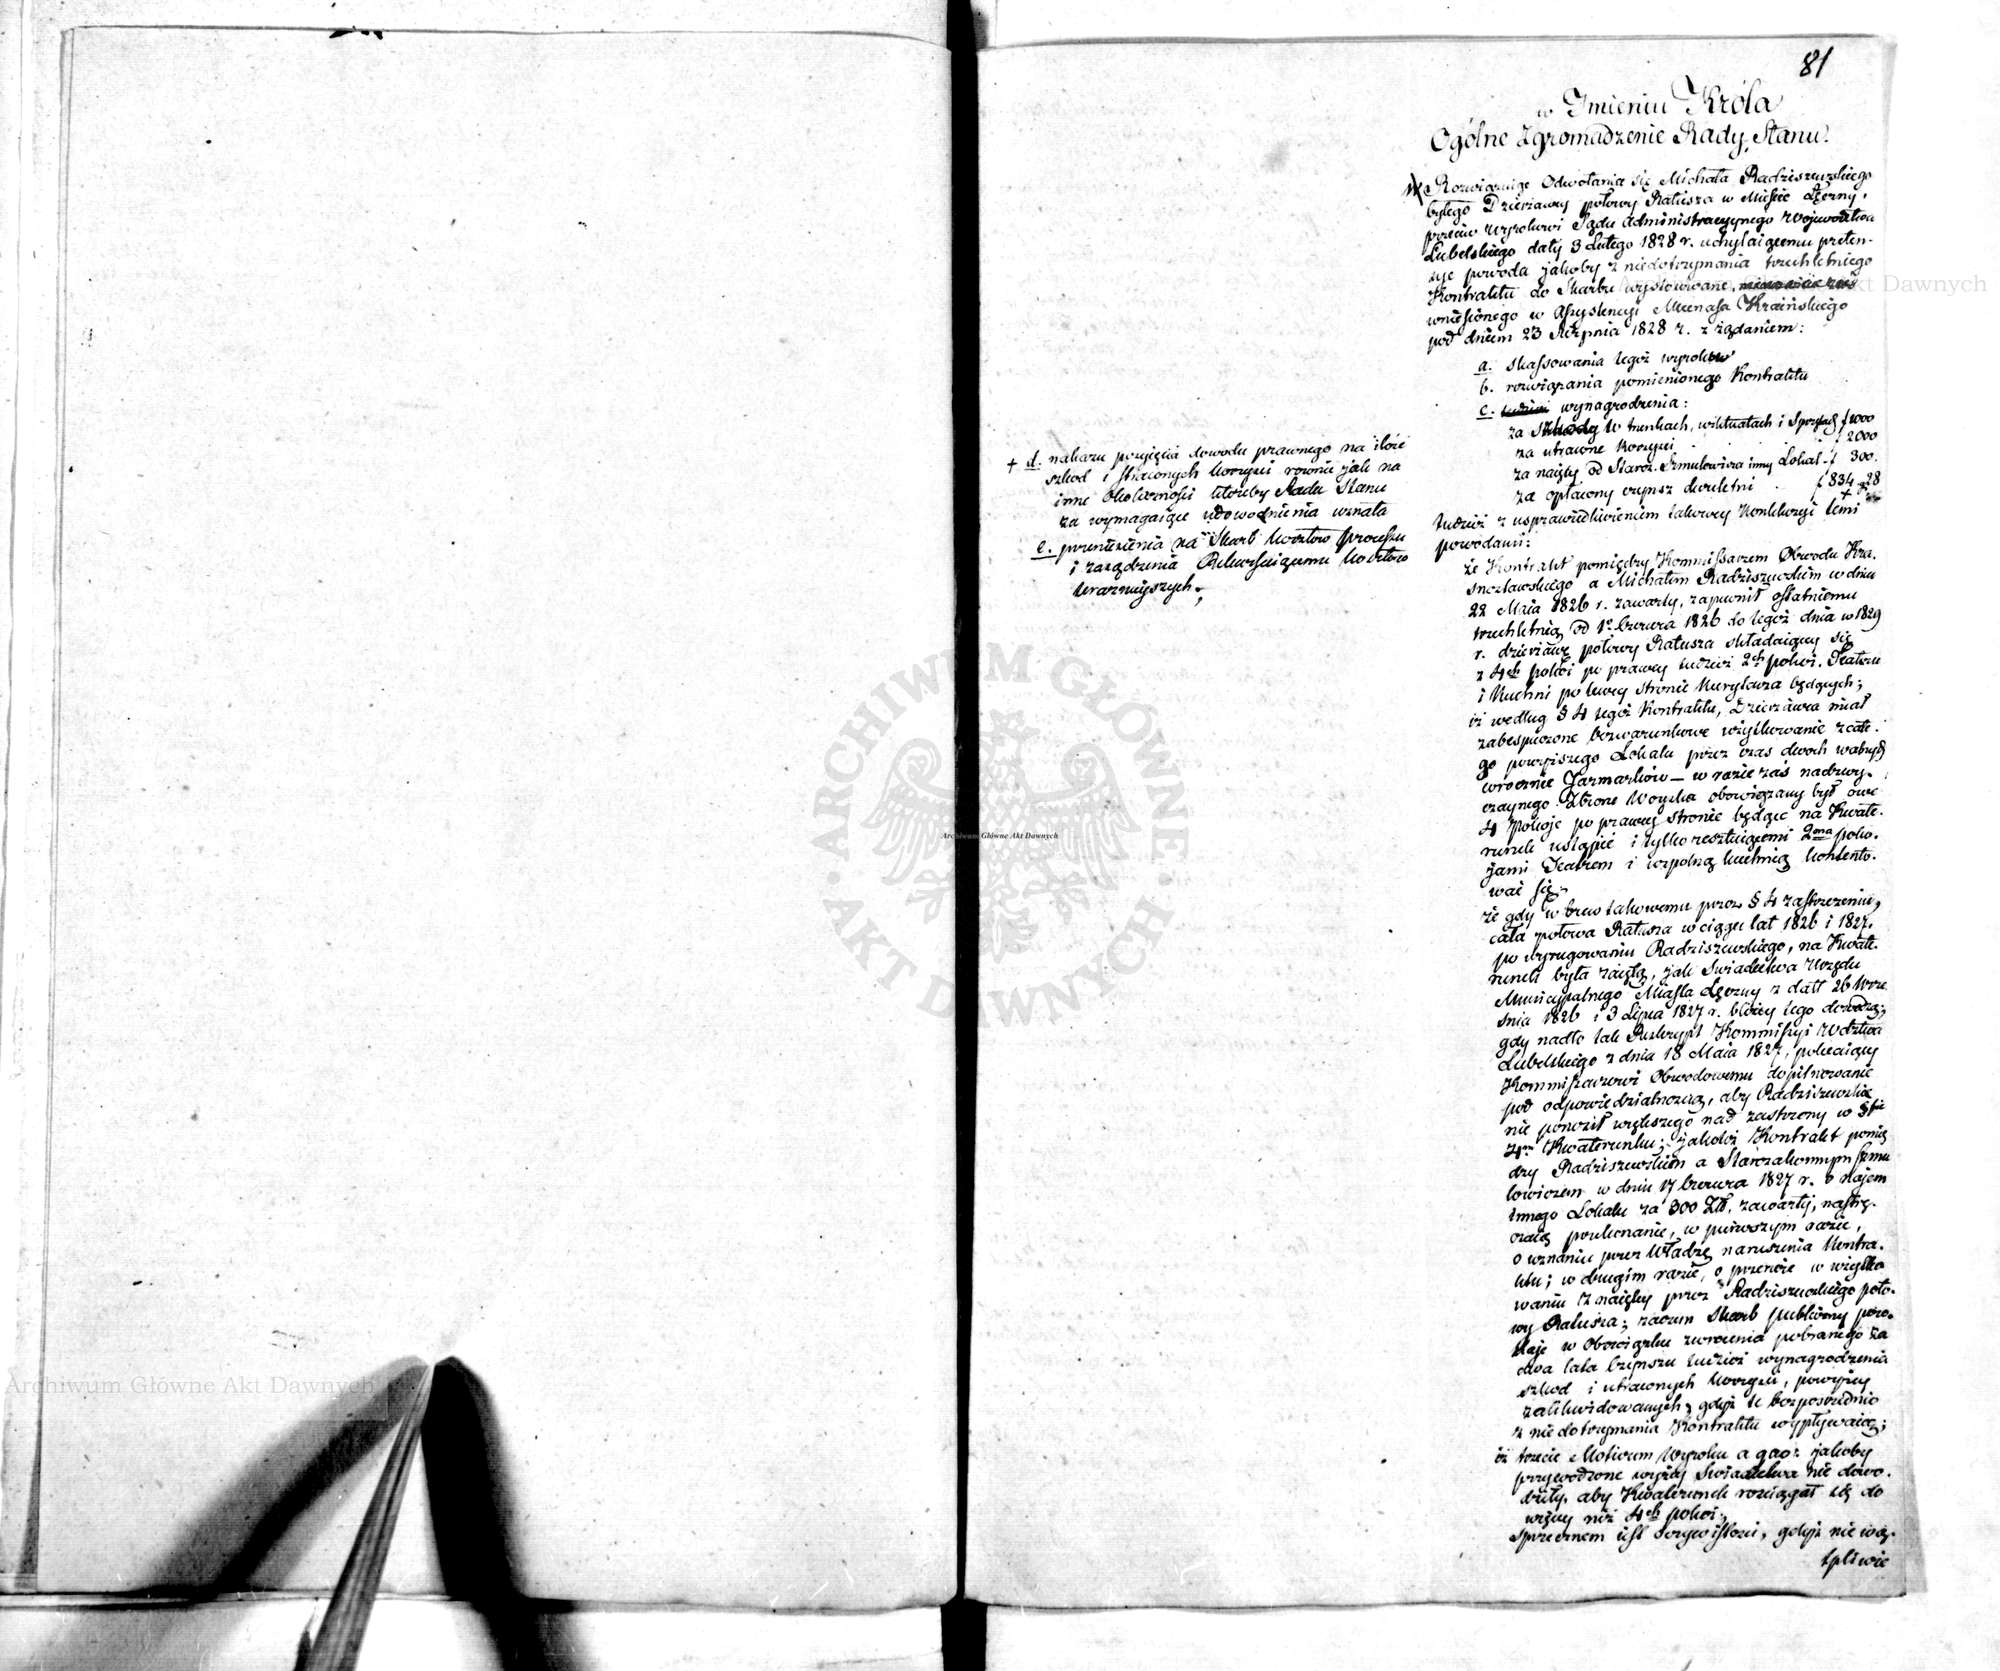 81
w Imieniu Króla
Ogólne Zgromadzenie Rady Stanu.
Rozwiązuiąc Odwołania się Michała Radziszewskiego
byłego Dzierżawcy połowy Ratusza w Mieście Łęczny,
przeciw wyrokowi Sądu Administracyjnego Województwa
Lubelskiego daty 3 Lutego 1828 r. uchylaiącemu preten-
sye powoda jakoby z niedotrzymania trzechletniego
Kontraktu do Skarbu wystosowane,
wniesionego w Assystencyi Mecenasa Kraińskiego
pod dniem 23 Sierpnia 1828 r. z żądaniem:
a. skassowania tegoż wyroku
b. rozwiązania pomienionego Kontraktu
c. wynagrodzenia:
za szkody w trunkach, wiktuałach i Sprzętach f 1000
za utracone korzyści f 2000
za naięty od Staroz. Szmulowicza inny Lokal f 300.
za opłacony czynsz dwuletni f 834 g 28
+
+ d. nakazu przyięcia dowodu prawnego na ilość
szkod i straconych korzyści rownie jak na
inne okoliczności któreby Rada Stanu
za wymagaiące udowodnienia uznała
e. przeniesienia na Skarb kosztow processu
i zarządzenia Rekurssuiącemu kosztow
teraznieyszych;
tudzież z usprawiedliwieniem takowey Konkluzyi temi
powodami:
że Kontrakt pomiędzy Kommissarzem Obwodu Kra-
snostawskiego a Michałem Radziszewskim w dniu
22 Maia 1826 r. zawarty, zapewnił ostatniemu
trzechletnią od 1o Czerwca 1826 do tegoż dnia w 1829
r. dzierżawę połowy Ratusza składaiącey się
z 4ch pokoi po prawey tudzież 2ch pokoi, Teatru
i Kuchni po lewey stronie Kurytarza będących;
iż według § 4 tegoż Kontraktu, Dzierżawca miał
zabespieczone bezwarunkowe użytkowanie z całe-
go powyższego Lokalu przez czas dwoch walnych
corocznie Jarmarków – w razie zaś nadzwy-
czaynego zbioru Woyska obowiązany był owe
4 Pokoje po prawey stronie będące na Kwate-
runek ustąpić i tylko resztuiącemi 2ma poko-
jami Teatrem i wspolną kuchnią kontento-
wać się,
że gdy w brew takowemu przez § 4 zastrzeżeniu,
cała połowa Ratusza w ciągu lat 1826 i 1827,
po wyrugowaniu Radziszewskiego, na Kwate-
runek była zaiętą, jak Swiadectwa Urzędu
Municypalnego Miasta Łęczny z datt 26 Wrze
śnia 1826 i 3 Lipca 1827 r. bliżey tego dowodzą;
gdy nadto tak Reskrypt Kommissyi Wdztwa
Lubelskiego z dnia 18 Maia 1827, polecaiący
Kommissarzowi Obwodowemu dopilnowanie
pod odpowiedzialnością, aby Radziszewski
nie ponosił większego nad zastrzeżony w §fie
4m Kwaterunku; jakoteż Kontrakt pomię
dzy Radziszewskim a Starozakonnym Szmu
lowiczem w dniu 17 Czerwca 1827 r. o najem
innego Lokalu za 300 Złł. zawarty, nastrę-
czaią przekonanie, w pierwszym razie,
o uznaniu przez Władzę naruszenia Kontra-
ktu; w drugim razie, o przerwie w użytko
waniu z naiętey przez Radziszewskiego poło-
wy Ratusza; zaczem Skarb publiczny pozo-
staje w obowiązku zwrocenia pobranego za
dwa lata czynszu tudzież wynagrodzenia
szkod i utraconych korzyści, powyżey
zalikwidowanych, gdyż te bezpośrednio
z niedotrzymania Kontraktu wypływaią;
iż trzecie Motivum Wyroku a quo: jakoby
przywodzone wyżey Swiadectwa nie dowo-
dziły, aby Kwaterunek rozciągał się do
więcey niż 4ch pokoi,
sprzecznem iest oczywistości, gdyż nie wą-
tpliwie